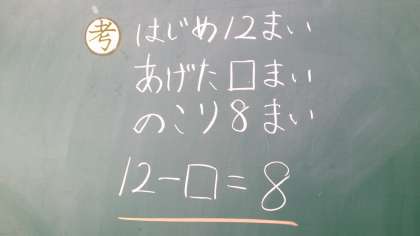 考 はじめ12まい
あげた□まい
のこり8まい
12-□=8